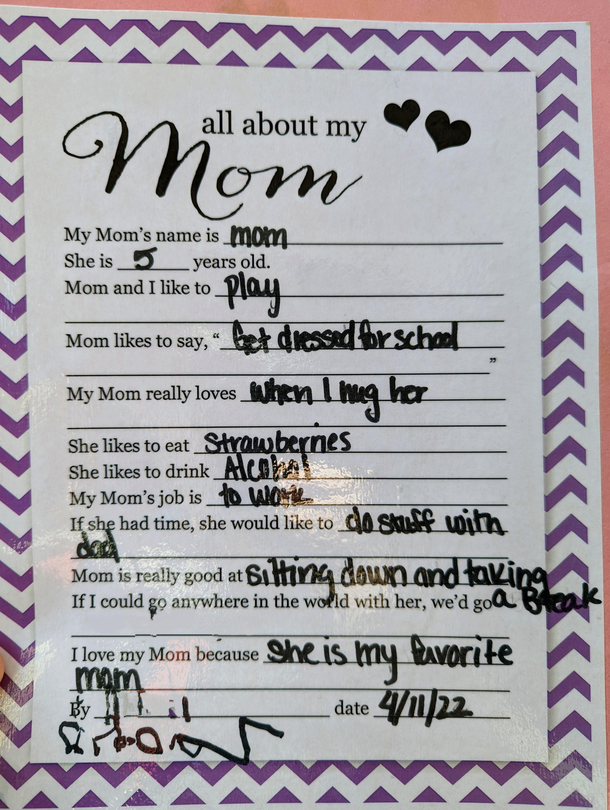 all about my
Mom
My Mom's name is mom
She is 5 years old.
Mom and I like to play
Mom likes to say, " Get dressed for school
"
My Mom really loves when I hug her
She likes to eat Strawberries
She likes to drink Alcohol
My Mom's job is to work
If she had time, she would like to do stuff with
dad
Mom is really good at sitting down and taking
If I could go anywhere in the world with her, we'd go a Break
I love my Mom because she is my favorite
mom
By date 4/11/22